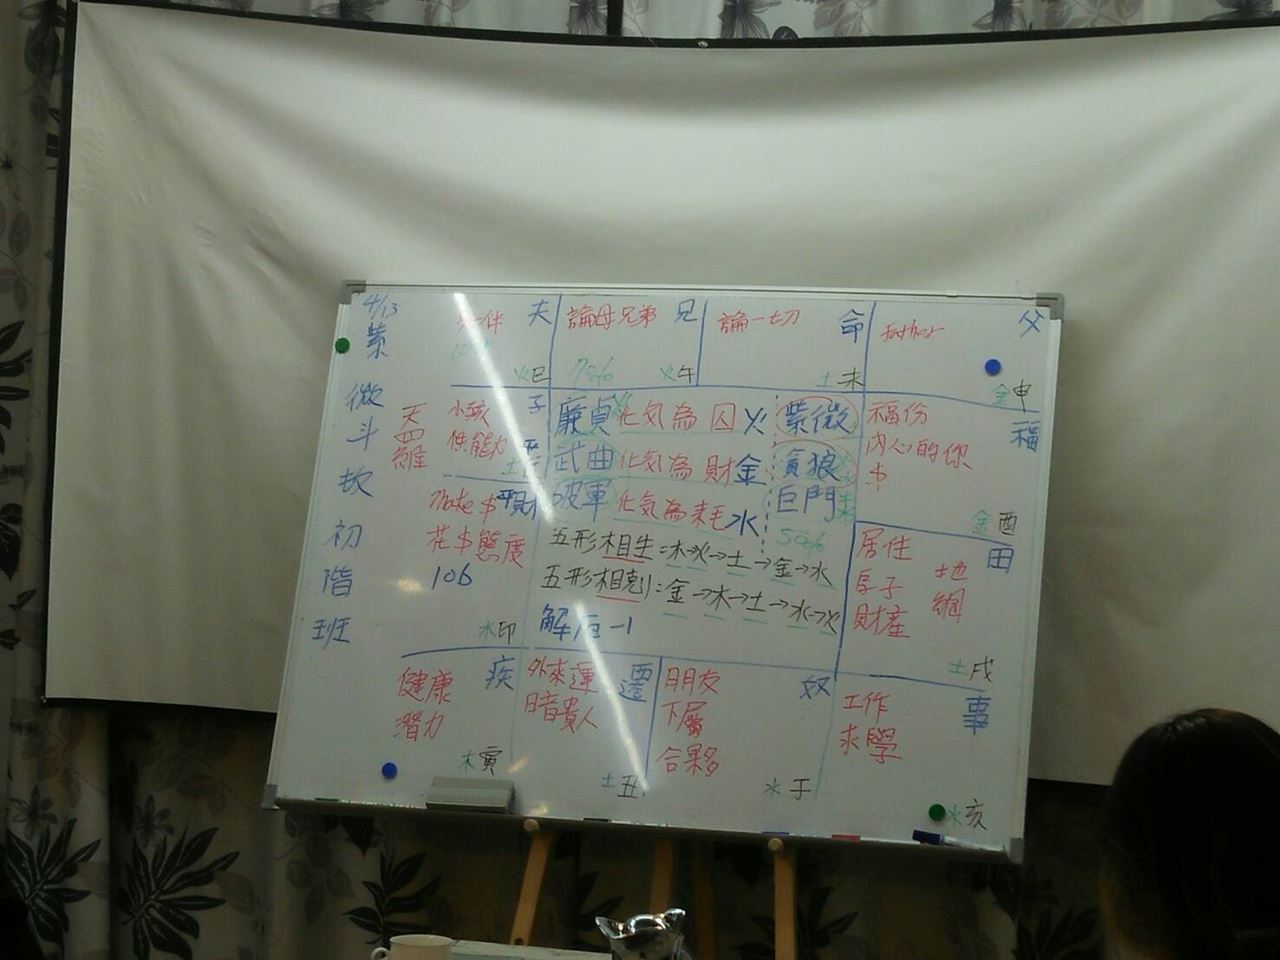 4/13
紫
微
斗
初
階
班
夫
伴
火巳
論母兄弟 兄
70%
火午
論一切 命
土未
father 父
金申
天
羅
小孩 子
性能力
廉貞 化気為囚 火
武曲 化気為財 金
破軍 化気為耗 水
紫微
貪狼
巨門
50%
福份 福
內心的你
$
金酉
make $ 財
花$態度
106
水卯
五形相生:木→火→土→金→水
五形相剋:金→木→土→水→火
解厄-1
居住 田
房子 地
財產 網
土戌
健康 疾
潛力
木寅
外來運 遷
暗貴人
土丑
朋友 奴
下屬
合夥
水子
工作 事
求學
水亥